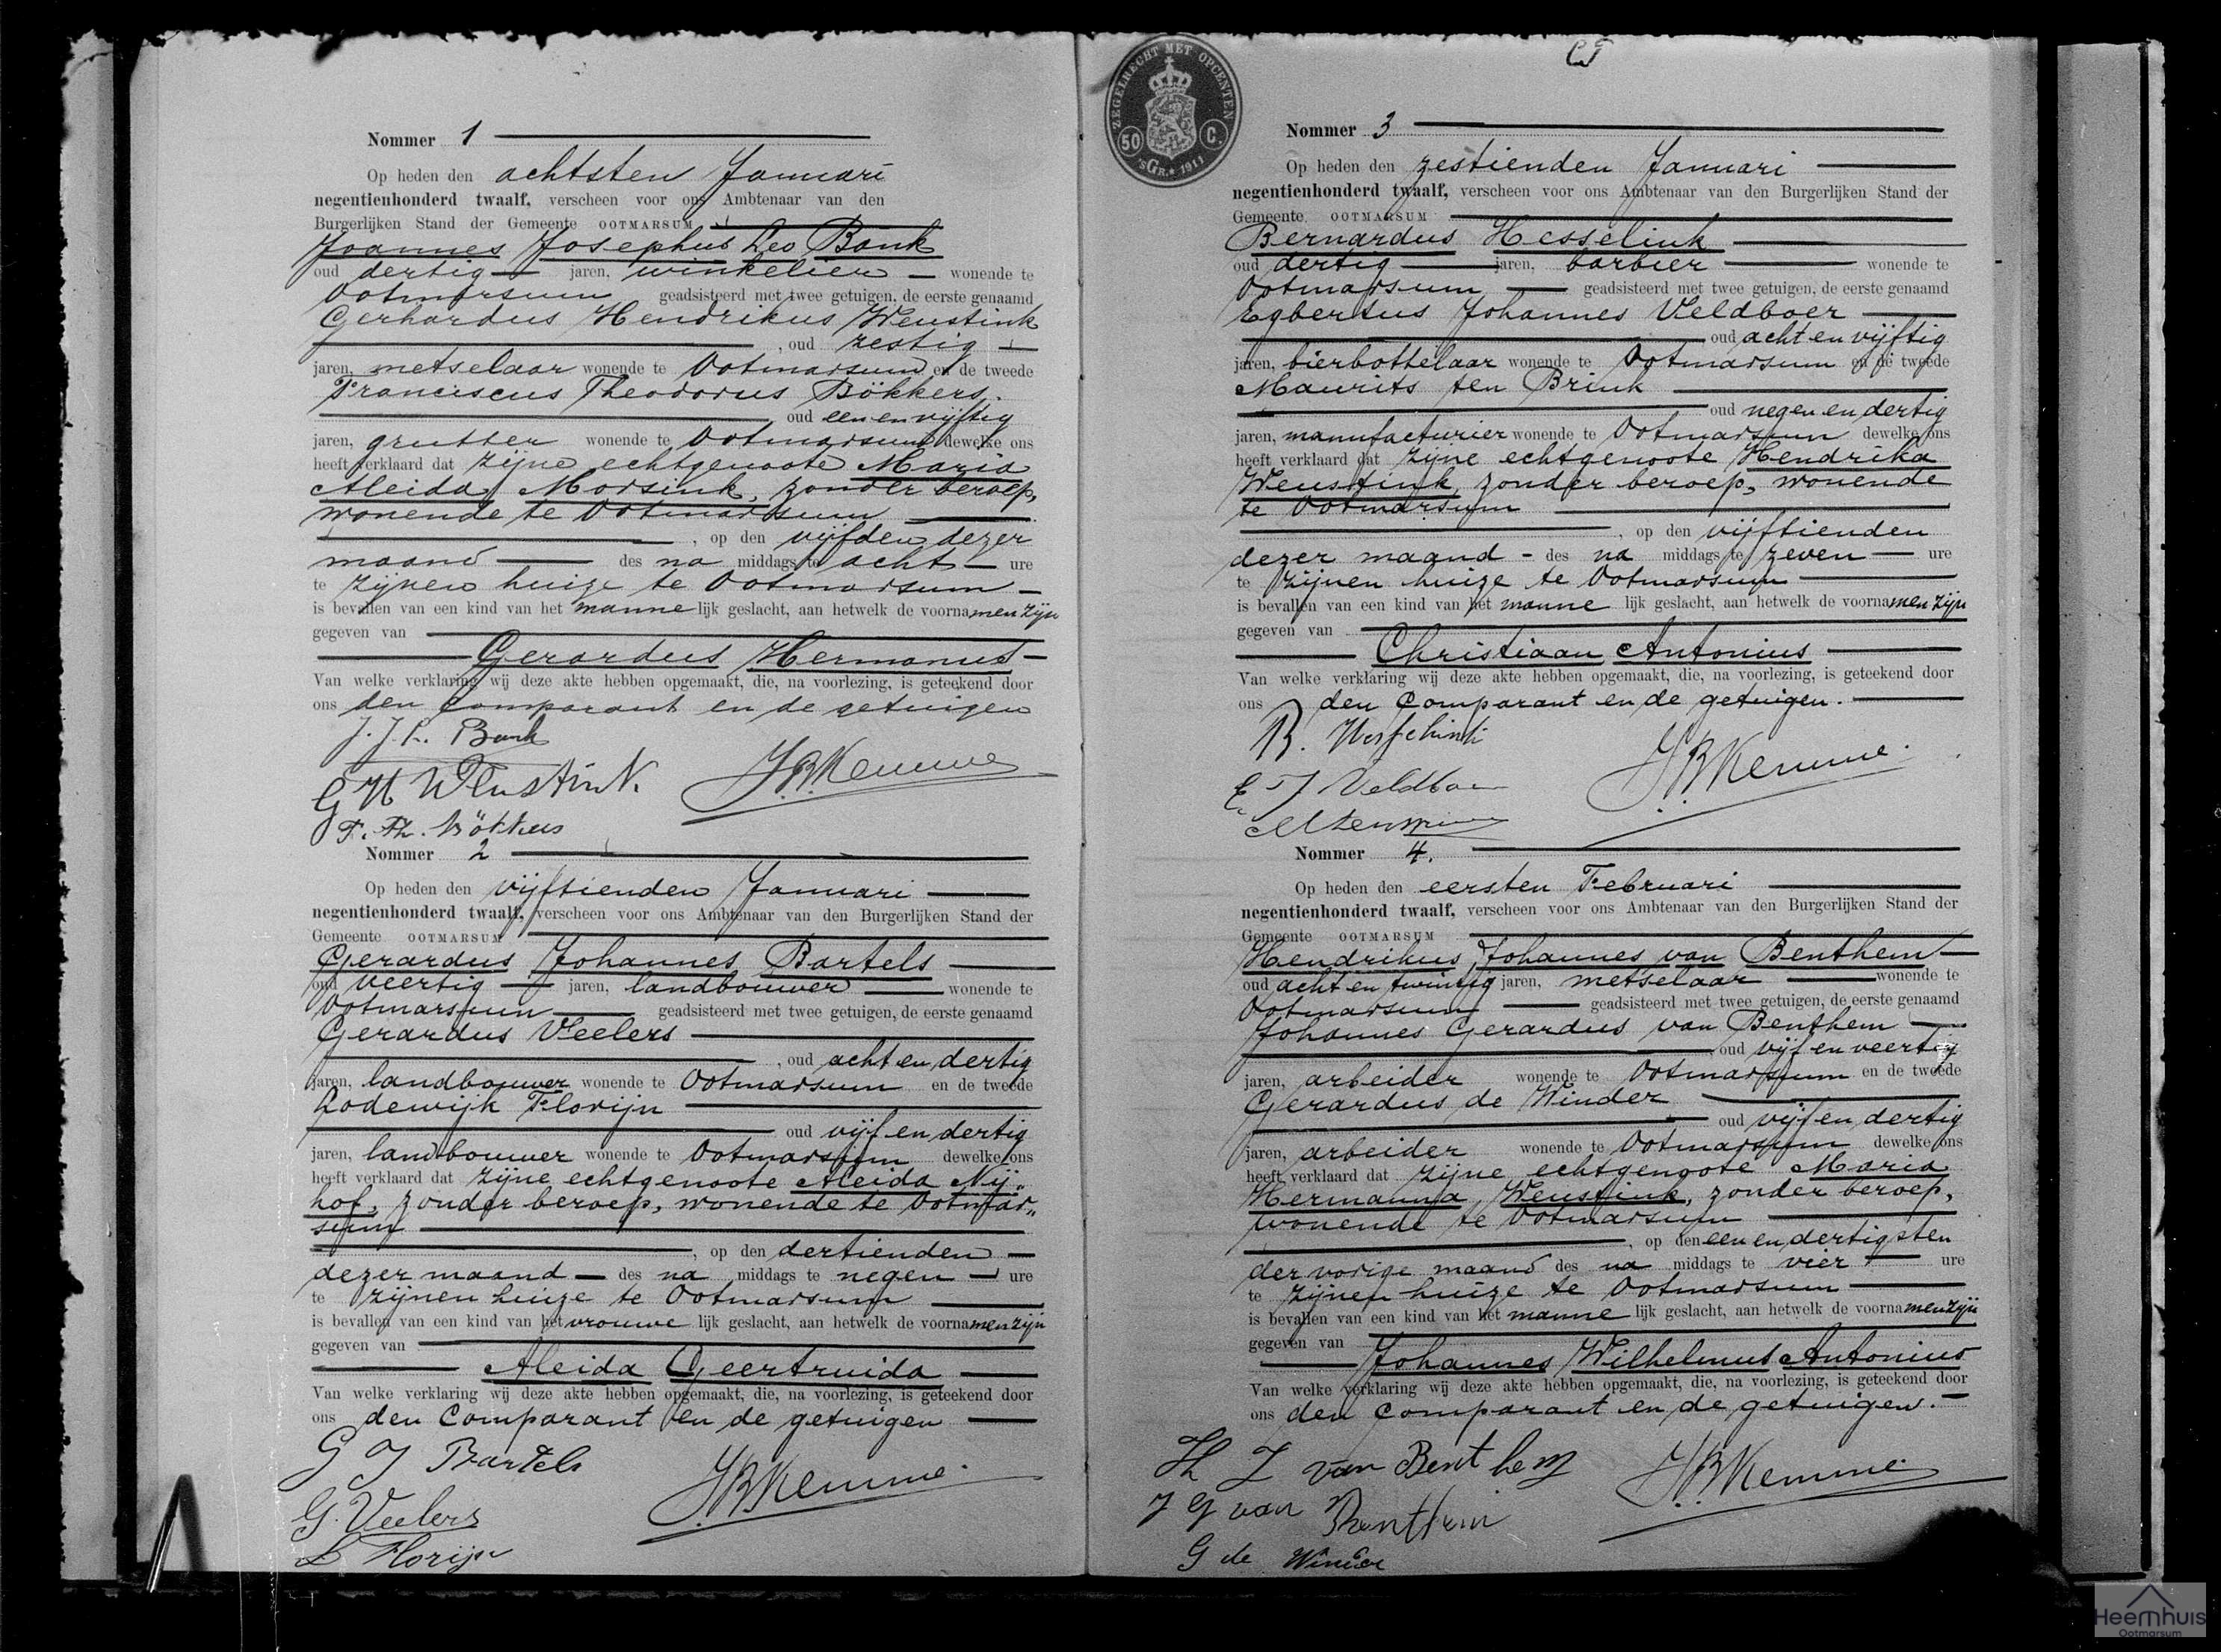 Nommer 1
Op heden den achtsten Januari
negentienhonderd twaalf, verscheen voor ons Ambtenaar van den
Burgerlijken Stand der Gemeente OOTMARSUM
Joannes Josephus Leo Bank
oud dertig jaren, winkelier wonende te
Ootmarsum geadsisteerd met twee getuigen, de eerste genaamd
Gerhardus Hendrikus Weustink
, oud zestig
jaren, metselaar wonende te Ootmarsum en de tweede
Franciscus Theodorus Bökkers.
oud een en vijftig
jaren, grutter wonende te Ootmarsum dewelke ons
heeft verklaard dat zijne echtgenoote Maria
Aleida Morsink, zonder beroep,
wonende te Ootmarsum
, op den vijfden dezer
maand des na middags te acht ure
te zijnen huize te Ootmarsum
is bevallen van een kind van het mannelijk geslacht, aan hetwelk de voornamen zijn
gegeven van
Gerardus Hermanus
Van welke verklaring wij deze akte hebben opgemaakt, die, na voorlezing, is geteekend door
ons den comparant en de getuigen
J. J. L. Bank
G H Weustink.
JBKemme
F. Th. Bökkers
Nommer 2
Op heden den vijftienden Januari
negentienhonderd twaalf, verscheen voor ons Ambtenaar van den Burgerlijken Stand der
Gemeente OOTMARSUM
Gerardus Johannes Bartels
oud veertig jaren, landbouwer wonende te
Ootmarsum geadsisteerd met twee getuigen, de eerste genaamd
Gerardus Veelers
, oud acht en dertig
jaren, landbouwer wonende te Ootmarsum en de tweede
Lodewijk Florijn
oud vijf en dertig
jaren, landbouwer wonende te Ootmarsum dewelke ons
heeft verklaard dat zijne echtgenoote Aleida Nij-
hof, zonder beroep, wonende te Ootmar-
sum
, op den dertienden
dezer maand des na middags te negen ure
te zijnen huize te Ootmarsum
is bevallen van een kind van het vrouwelijk geslacht, aan hetwelk de voornamen zijn
gegeven van
Aleida Geertruida
Van welke verklaring wij deze akte hebben opgemaakt, die, na voorlezing, is geteekend door
ons den Comparant en de getuigen
G J Bartels
JBKemme.
G. Veelers
L Florijn
ZEGELRECHT MET OPCENTEN
50 C.
'sGR. 1911
Nommer 3
Op heden den zestienden Januari
negentienhonderd twaalf, verscheen voor ons Ambtenaar van den Burgerlijken Stand der
Gemeente OOTMARSUM
Bernardus Hesselink
oud dertig jaren, barbier wonende te
Ootmarsum geadsisteerd met twee getuigen, de eerste genaamd
Egbertus Johannes Veldboer
oud acht en vijftig
jaren, bierbottelaar wonende te Ootmarsum en de tweede
Maurits ten Brink
oud negen en dertig
jaren, manufacturier wonende te Ootmarsum dewelke ons
heeft verklaard dat zijne echtgenoote Hendrika
Weustink, zonder beroep, wonende
te Ootmarsum
, op den vijftienden
dezer maand - des na middags te zeven ure
te zijnen huize te Ootmarsum
is bevallen van een kind van het mannelijk geslacht, aan hetwelk de voornamen zijn
gegeven van
Christiaan Antonius
Van welke verklaring wij deze akte hebben opgemaakt, die, na voorlezing, is geteekend door
ons den Comparant en de getuigen.
B. Hesselink
JBKemme.
E J Veldboer
Nommer 4.
Op heden den eersten Februari
negentienhonderd twaalf, verscheen voor ons Ambtenaar van den Burgerlijken Stand der
Gemeente OOTMARSUM
Hendrikus Johannes van Benthem
oud acht en twintig jaren, metselaar wonende te
Ootmarsum geadsisteerd met twee getuigen, de eerste genaamd
Johannes Gerardus van Benthem
oud vijf en veertig
jaren, arbeider wonende te Ootmarsum en de tweede
Gerardus de Winder
oud vijf en dertig
jaren, arbeider wonende te Ootmarsum dewelke ons
heeft verklaard dat zijne echtgenoote Maria
Hermanna Weustink, zonder beroep,
wonende te Ootmarsum
, op den een en dertigsten
der vorige maand des na middags te vier ure
te zijnen huize te Ootmarsum
is bevallen van een kind van het mannelijk geslacht, aan hetwelk de voornamen zijn
gegeven van
Johannes Wilhelmus Antonius
Van welke verklaring wij deze akte hebben opgemaakt, die, na voorlezing, is geteekend door
ons den comparant en de getuigen.
H J van Benthem
JBKemme.
J G van Benthem
G de Winder
Heemhuis
Ootmarsum